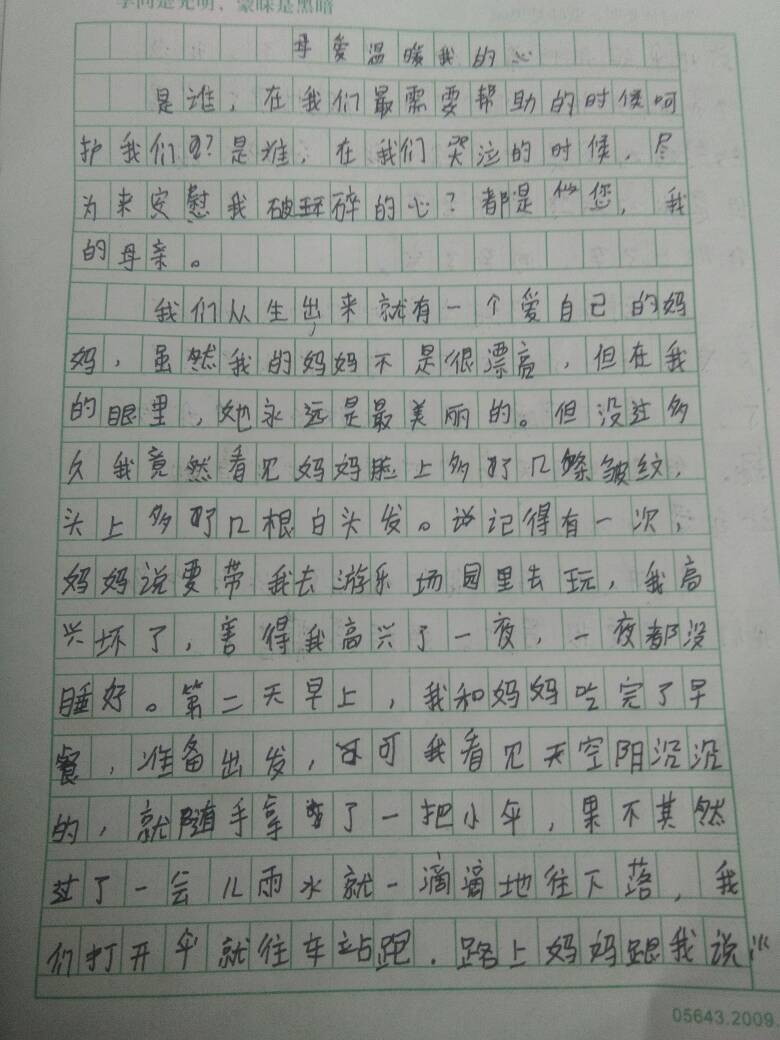 学问是光明，蒙昧是黑暗
母爱温暖我的心
是谁，在我们最需要帮助的时候呵
护我们？是谁，在我们哭泣的时候，尽
为来安慰我破碎的心？都是您，我
的母亲。
我们从生出来就有一个爱自己的妈
妈，虽然我的妈妈不是很漂亮，但在我
的眼里，她永远是最美丽的。但没过多
久我竟然看见妈妈脸上多了几条皱纹，
头上多了几根白头发。记得有一次，
妈妈说要带我去游乐场园里去玩，我高
兴坏了，害得我高兴了一夜，一夜都没
睡好。第二天早上，我和妈妈吃完了早
餐，准备出发，可我看见天空阴沉沉
的，就随手拿了一把小伞，果不其然
过了一会儿雨水就一滴滴地往下落，我
们打开伞就往车站跑．路上妈妈跟我说“
05643.2009.